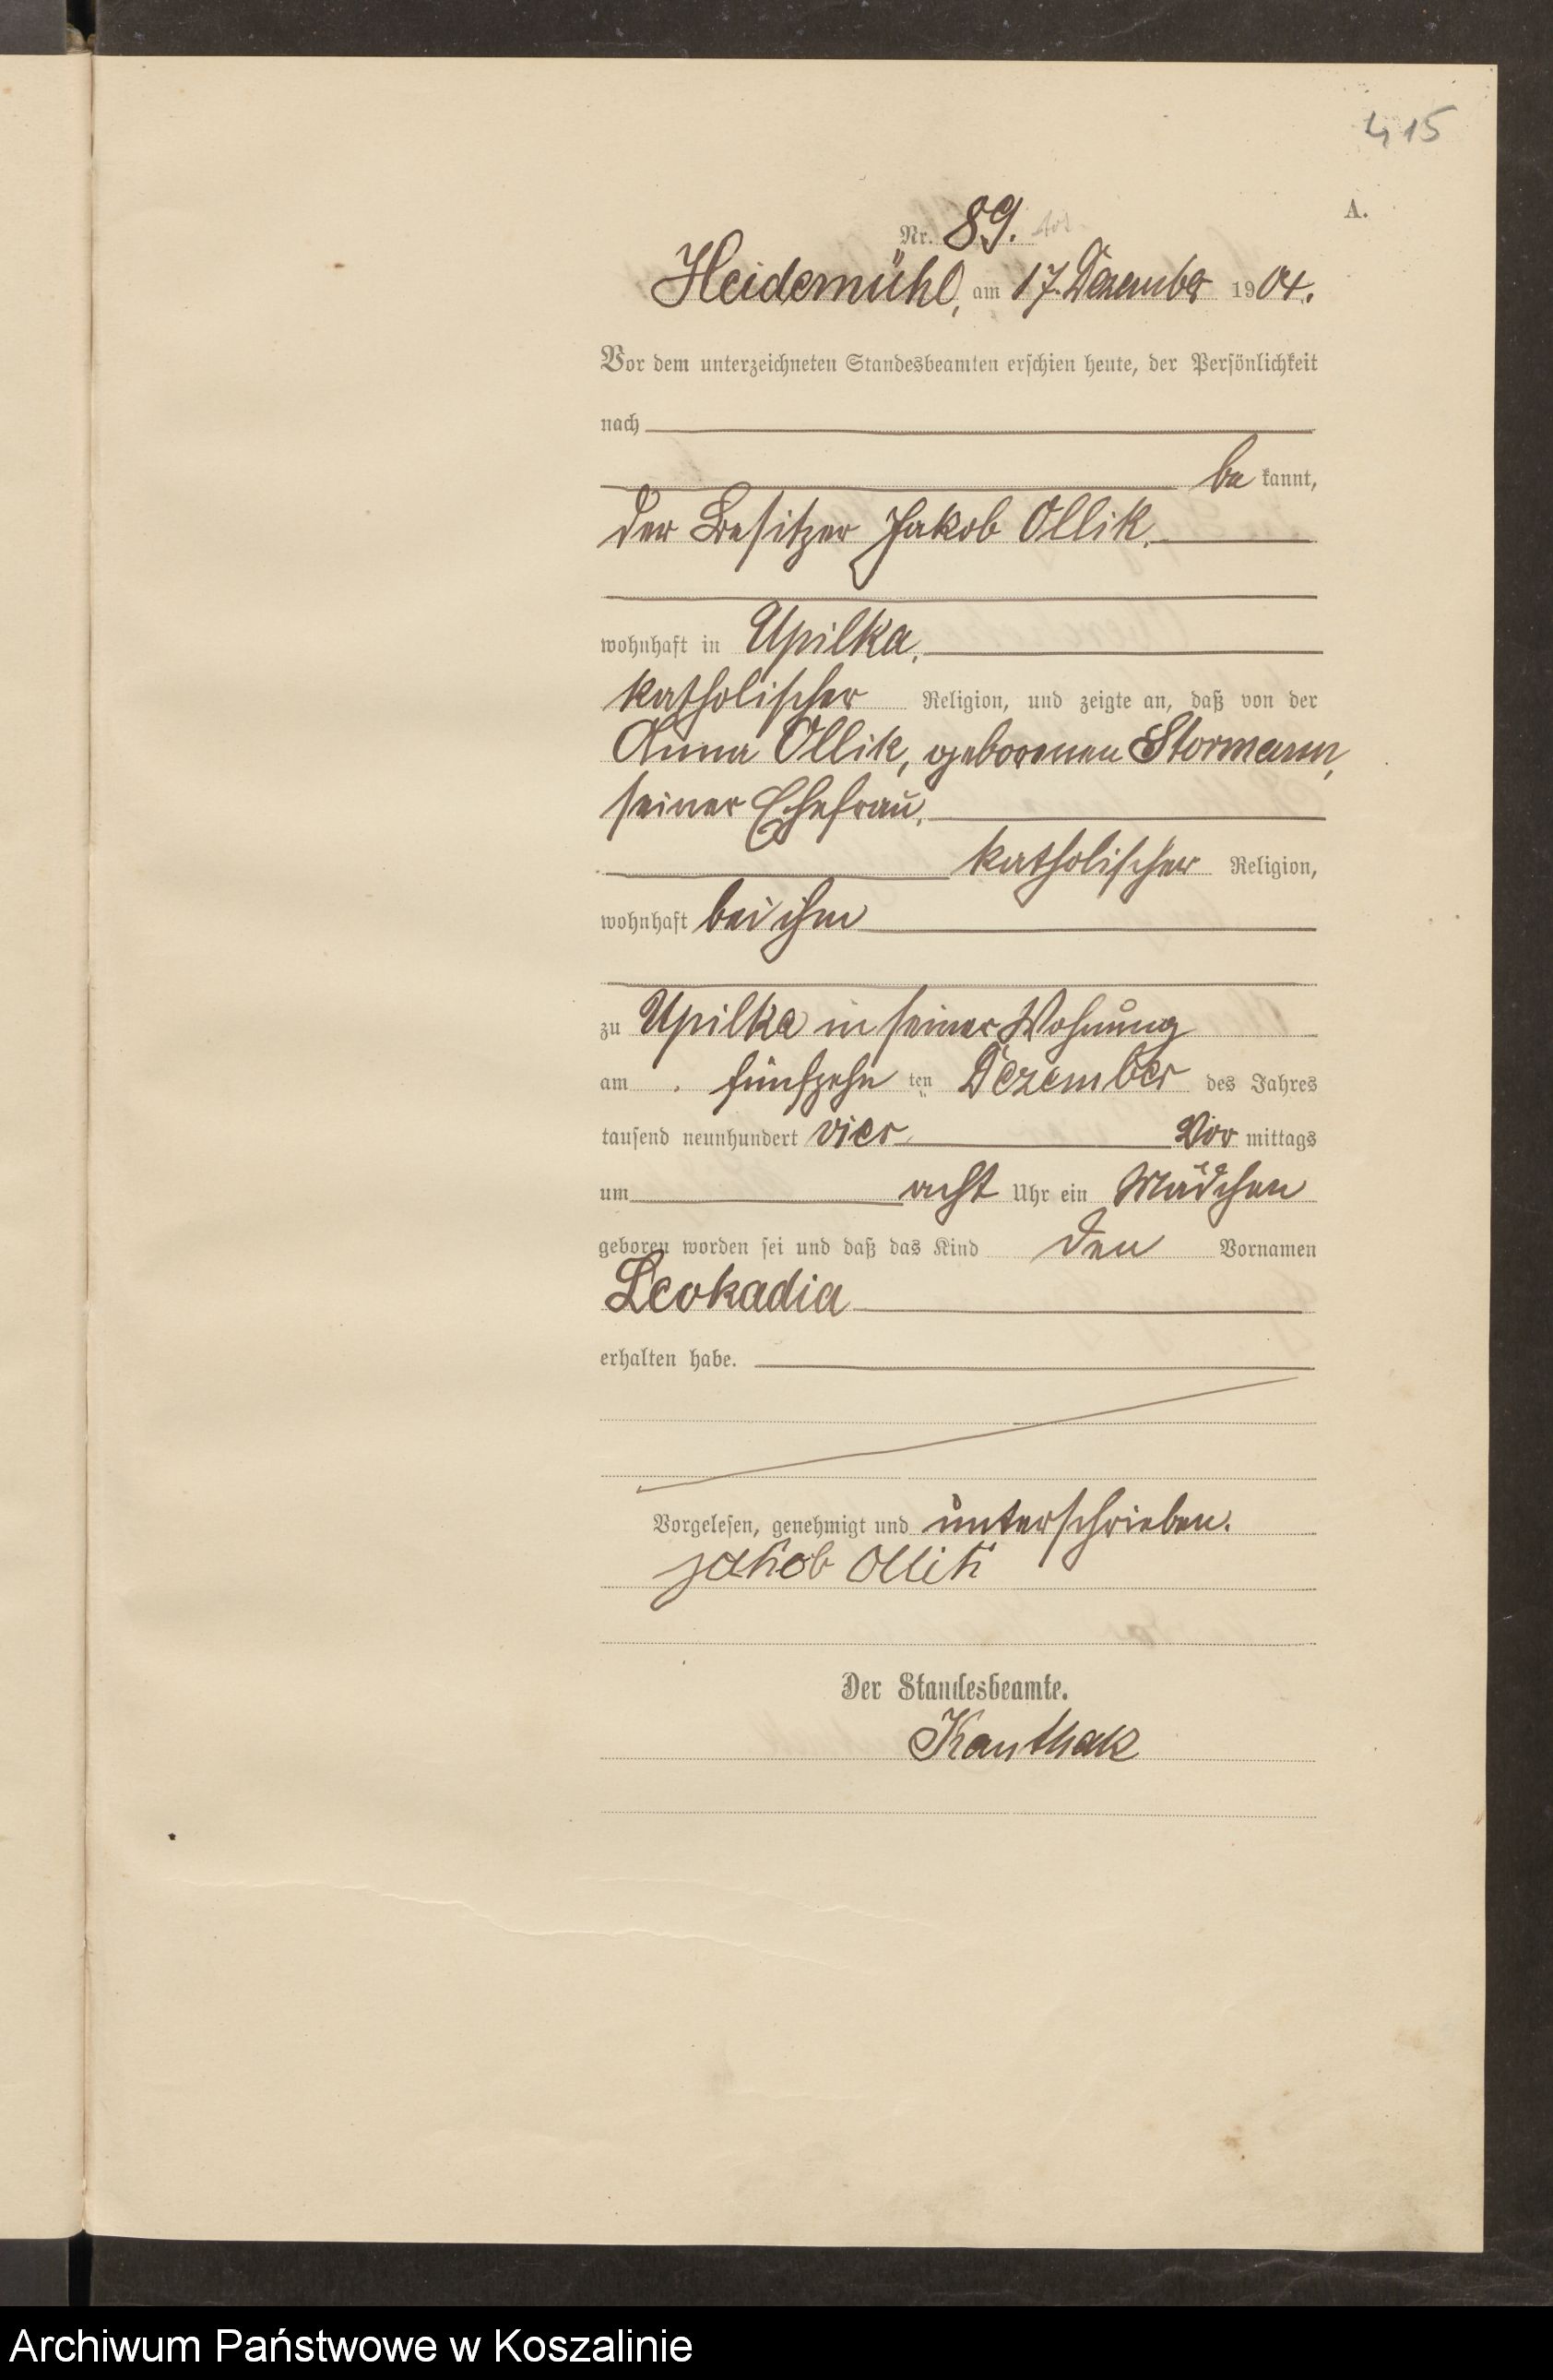 415
A.
Nr. 89.
Heidemühl, am 17. Dezember 1904.
Vor dem unterzeichneten Standesbeamten erschien heute, der Persönlichkeit
nach
be kannt,
der Besitzer Jakob Ollik,
wohnhaft in Upilka,
katholischer Religion, und zeigte an, daß von der
Anna Ollik, geborenen Stormann,
seiner Ehefrau,
katholischer Religion,
wohnhaft bei ihm
zu Upilka in seiner Wohnung
am fünfzehn ten Dezember des Jahres
tausend neunhundert vier Vor mittags
um acht Uhr ein Mädchen
geboren worden sei und daß das Kind den Vornamen
Leokadia
erhalten habe.
Vorgelesen, genehmigt und unterschrieben.
Jakob Ollik
Der Standesbeamte.
Kanthak
Archiwum Państwowe w Koszalinie